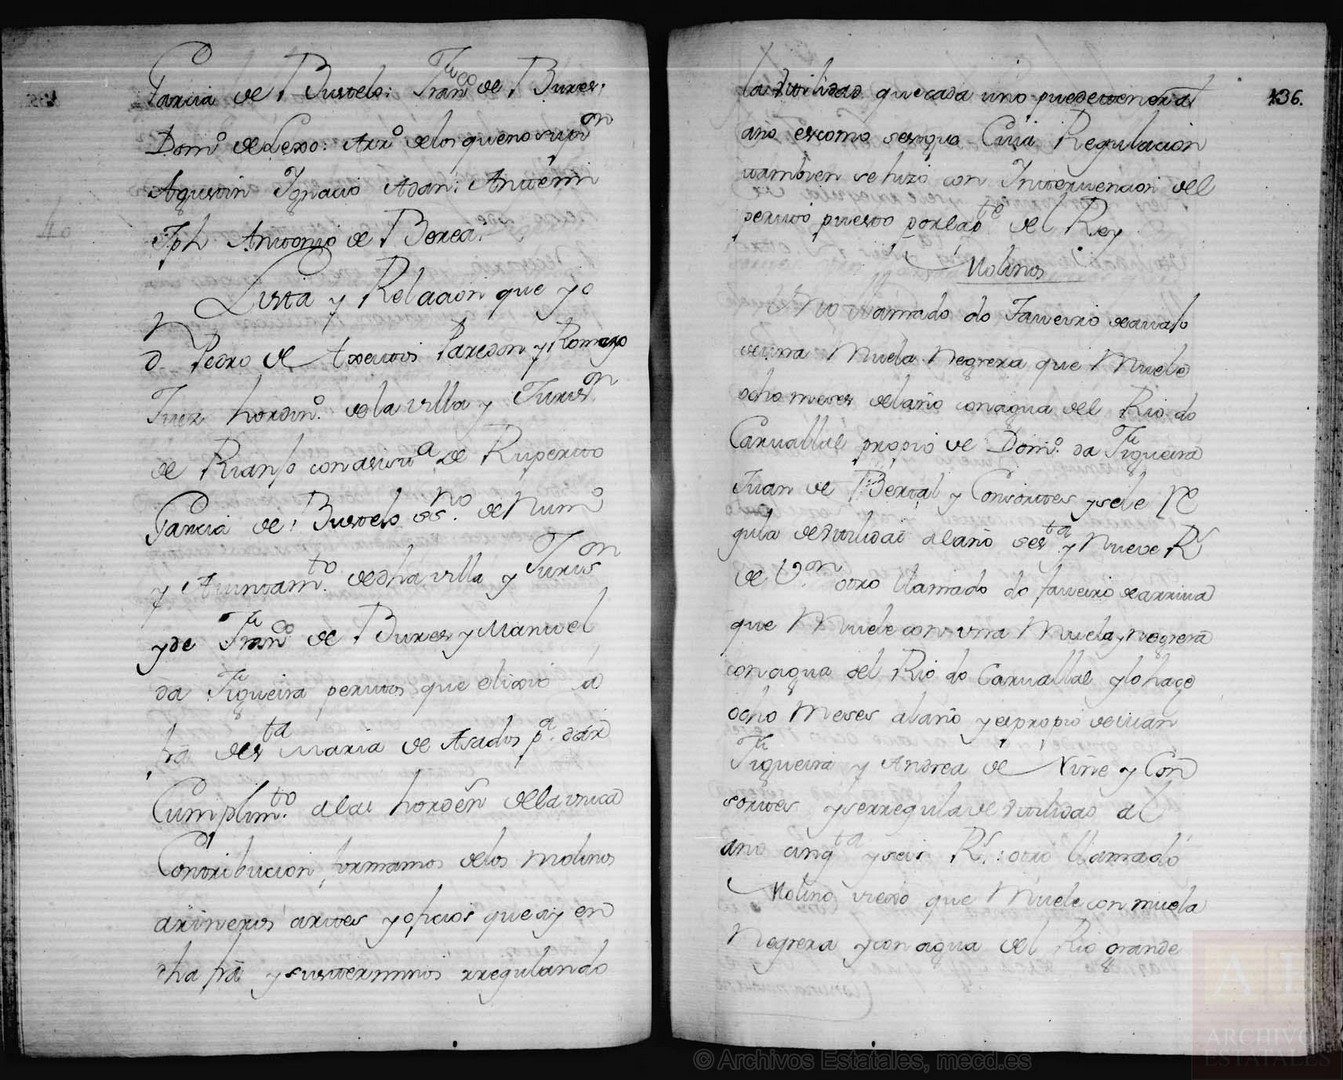 Garcia de Bustelo: Franco de Bures;
Domo de Lexo: Arro de los que no supon
Agustin Ignacio Adan: Antemi
Jph Antonio de Borea
Lista y Relacion que yo
Dn Pedro de Pardon y Romazo
Juez hordino de la villa y Jurison
de Rianjo con asista de Ruperto
Garcia de Bustelo ssno de Numo
y Aiuntamto de dha villa y Jurison
y de Franco de Bures y Manuel
da Figueira peritos que elixio a
fra de Sta Maria de Asados pa dar
Cumplimto a la horden de la unica
Contribucion, formamos de los molinos
arineros artes y oficios que ay en
dha fra y sus terminos rregulando
136.
la utilidad que cada uno puede tener al
año es como se sigue Cuia Regulacion
tambien se hizo con Intervencion del
perito puesto por la pte del Rey
Molinos
Uno llamado do Faueiro de auajo
de una Muela Negrera que Muele
ocho meses del año con agua del Rio do
Caruallal propio de Domo da Figueira
Juan de Bexal y Consortes y se le Re
gula de utilidad al año sesta y Nueve Rs
de Von otro llamado do faueiro de arriua
que Muele con una Muela negrera
con agua del Rio do Caruallal y lo haçe
ocho Meses al año y es propio de Juan
Figueira y Andrea de Niñe y Con
sortes y se rregula de utilidad al
año cinqta y seis Rs: otro llamado
Molino viexo que Muele con muela
Negrera y con agua del Rio grande
© Archivos Estatales, mecd.es
AE
ARCHIVOS
ESTATALES